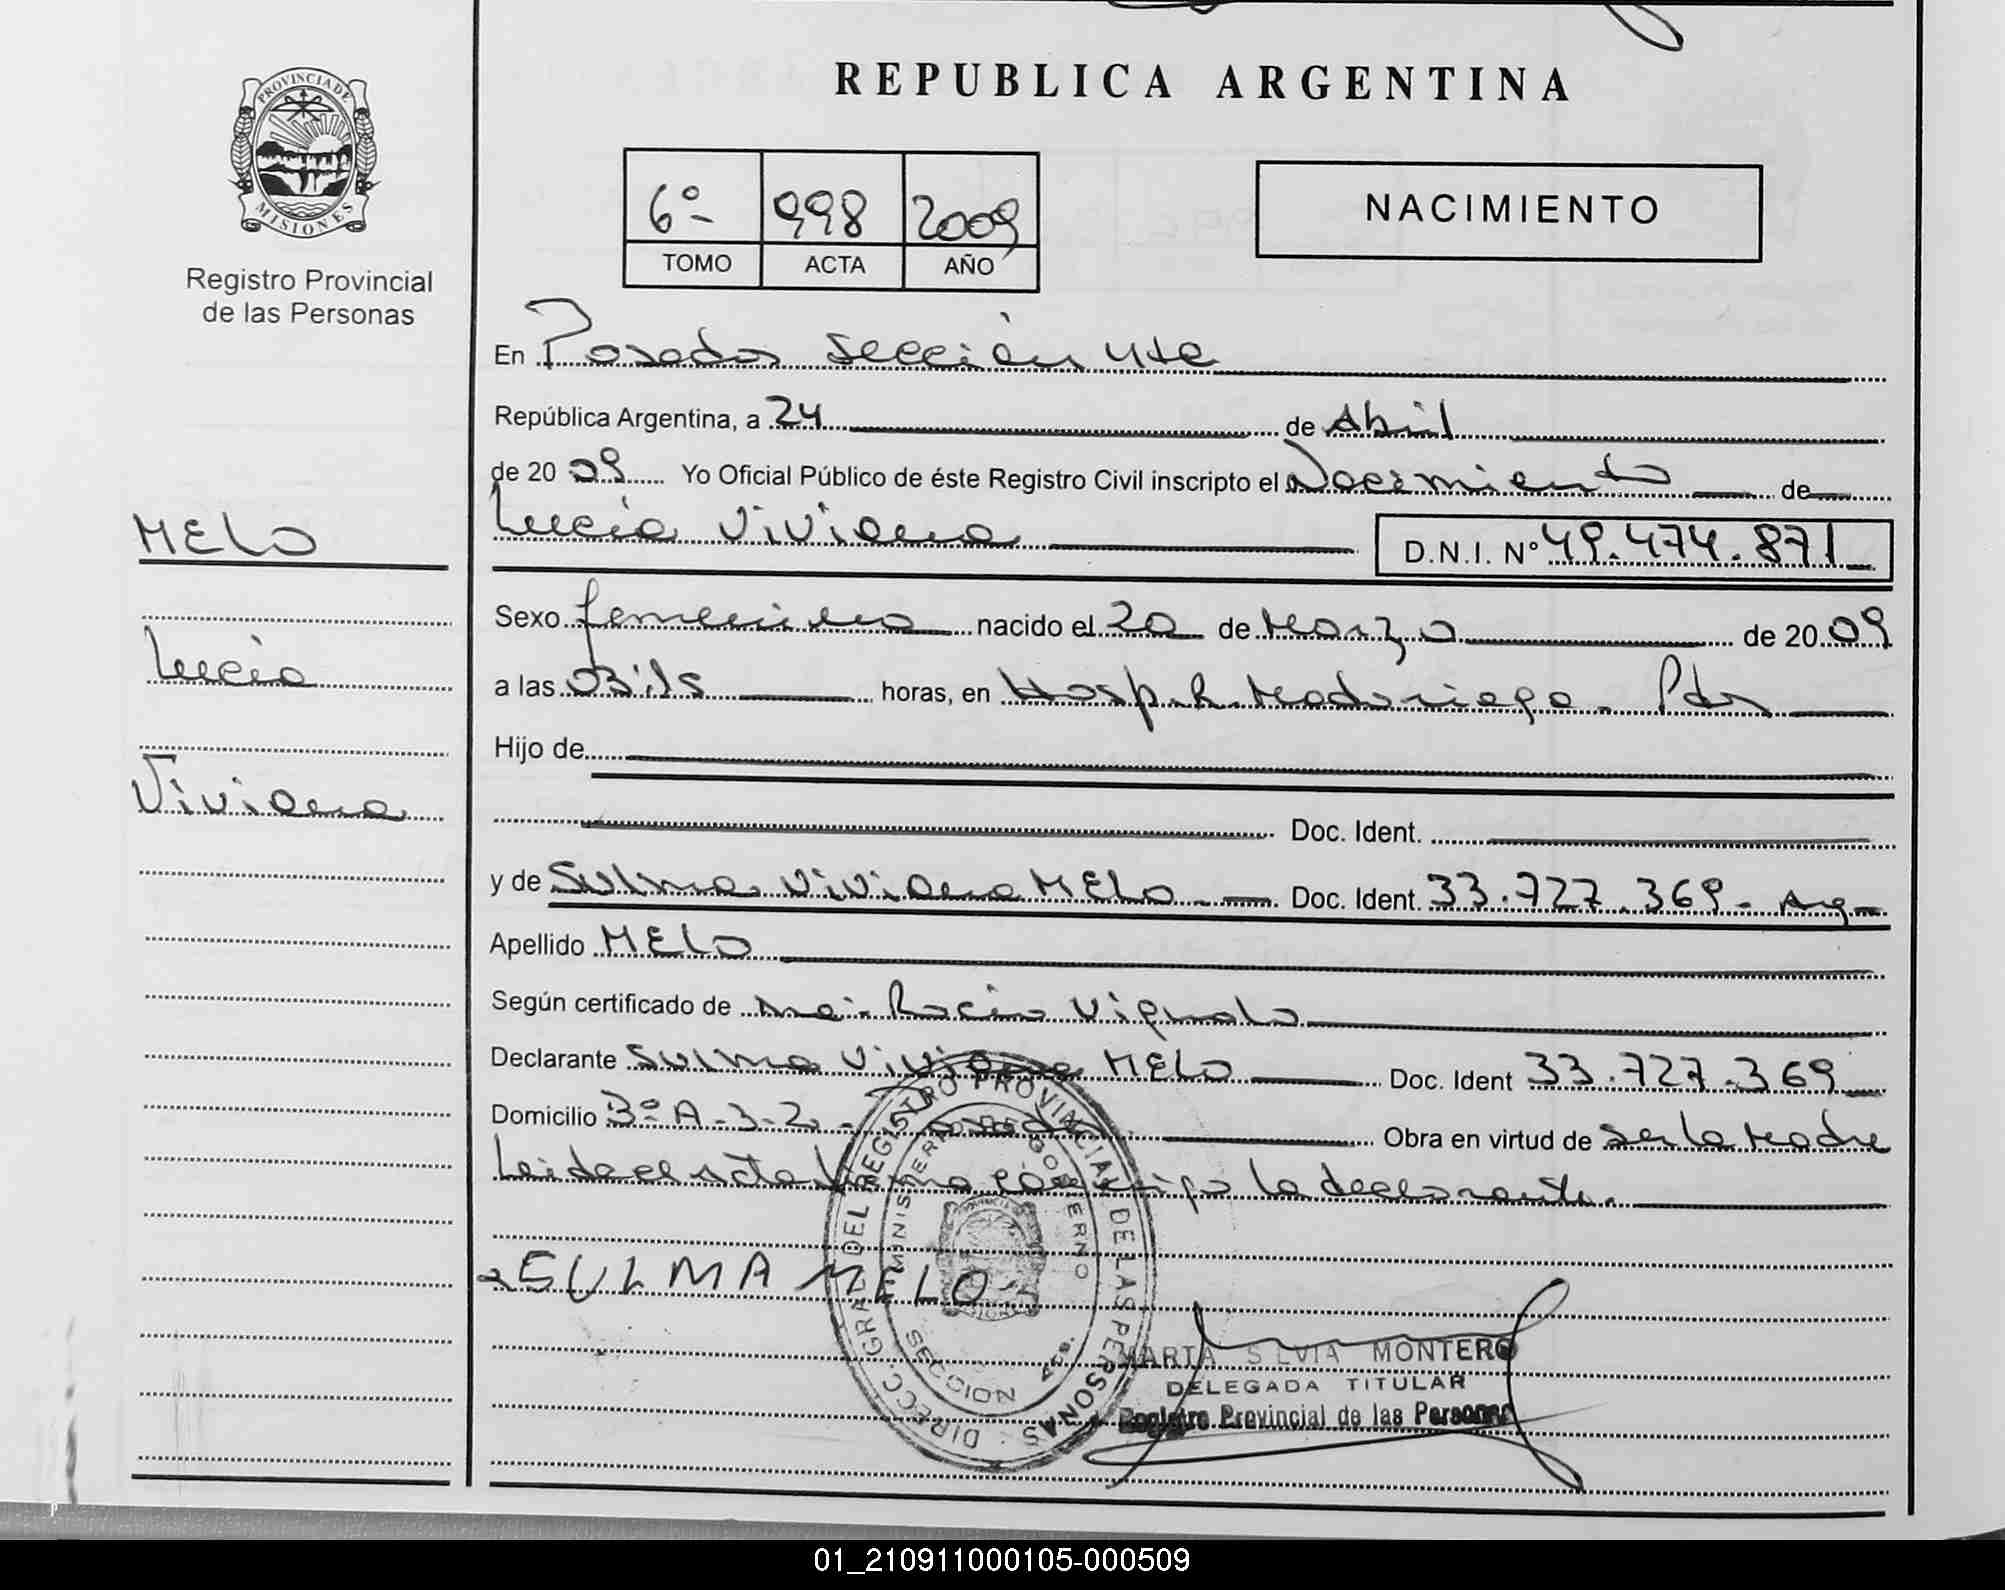 REPUBLICA ARGENTINA
PROVINCIA DE
MISIONES
Registro Provincial
de las Personas
6º 998 2009
TOMO ACTA AÑO
NACIMIENTO
En Posadas sección 4ta
República Argentina, a 24 de Abril
de 20 09 Yo Oficial Público de éste Registro Civil inscripto el Nacimiento de
Lucía Viviana D.N.I. Nº 49.474.871
MELO
Lucía
Viviana
Sexo femenino nacido el 20 de Marzo de 20 09
a las 03:15 horas, en Hosp. R. Madariaga. Pdas
Hijo de
Doc. Ident.
y de Sulma Viviana MELO Doc. Ident. 33.727.369 - Arg-
Apellido MELO
Según certificado de Ma. Rocío Vignolo
Declarante Sulma Viviana MELO Doc. Ident 33.727.369
Domicilio 3º A-3-2 - Posadas Obra en virtud de ser la Madre
Leida el acta firma conmigo la declarante.
SULMA MELO
DIRECC. GRAL. DEL REGISTRO PROVINCIAL DE LAS PERSONAS
MINISTERIO DE GOBIERNO
SECCION
MARTA SILVIA MONTERO
DELEGADA TITULAR
Registro Provincial de las Personas
01_210911000105-000509